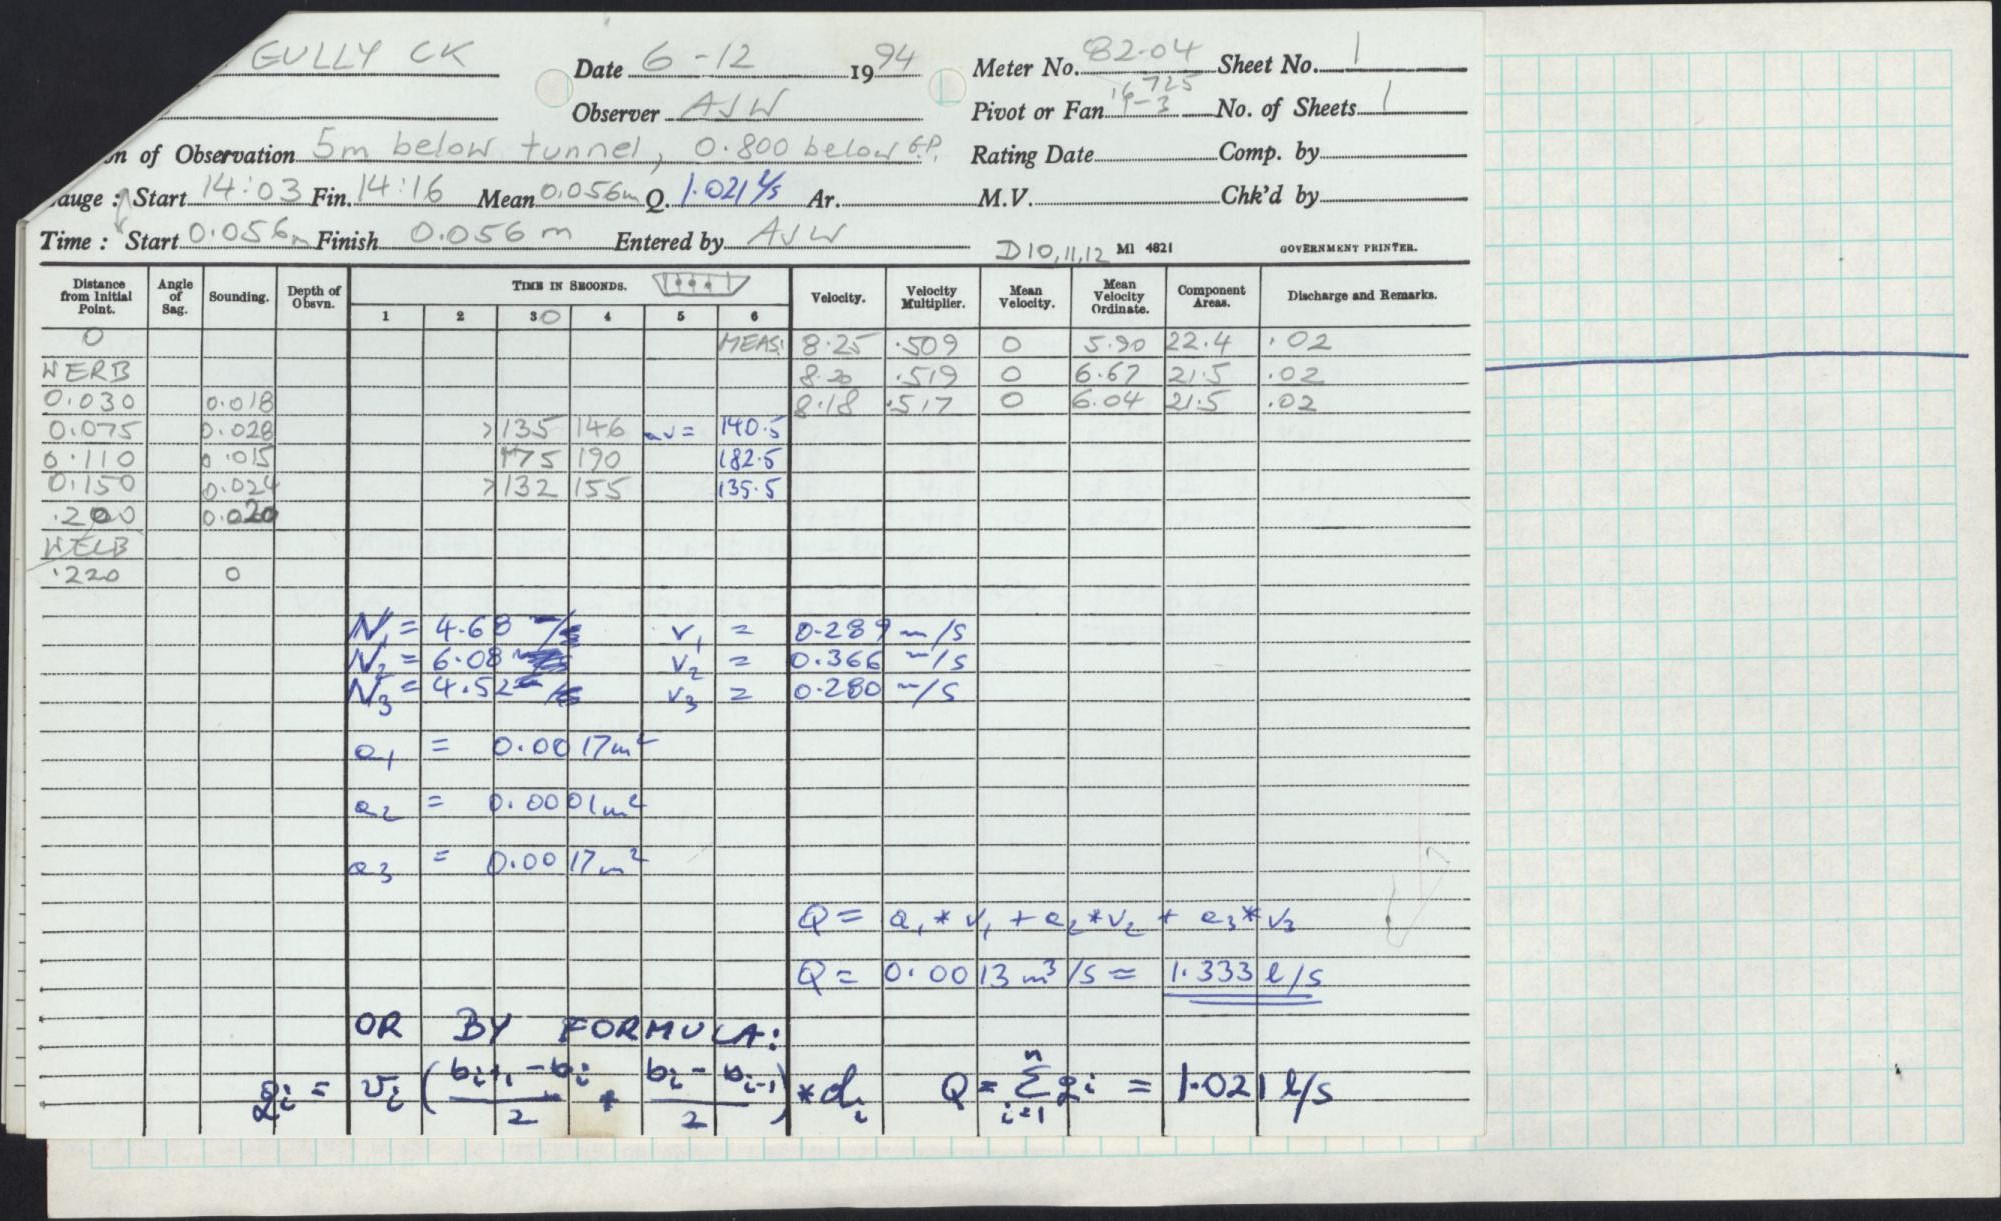 GULLY CK Date 6-12 1994 Meter No. 82-04 Sheet No. 1
Observer AJW Pivot or Fan 9-3 No. of Sheets 1
on of Observation 5m below tunnel, 0.800 below G.P. Rating Date Comp. by
auge : Start 14:03 Fin. 14:16 Mean 0.056m Q. 1.021 l/s Ar. M.V. Chk'd by
Time : Start 0.056m Finish 0.056 m Entered by AJW D10,11,12 MI 4821 GOVERNMENT PRINTER.
Distance from Initial Point. Angle of Sag. Sounding. Depth of Obsvn. TIME IN SECONDS. Velocity. Velocity Multiplier. Mean Velocity. Mean Velocity Ordinate. Component Areas. Discharge and Remarks.
1 2 30 4 5 6
0 MEAS: 8.25 .509 0 5.90 22.4 .02
WERB 8.20 .519 0 6.67 21.5 .02
0.030 0.018 8.18 .517 0 6.04 21.5 .02
0.075 0.028 >135 146 av= 140.5
0.110 0.015 175 190 182.5
0.150 0.024 >132 155 135.5
.200 0.020
WELB
.220 0
N1 = 4.68 v1 = 0.289 m/s
N2 = 6.08 v2 = 0.366 m/s
N3 = 4.52 v3 = 0.280 m/s
a1 = 0.0017m²
a2 = 0.0001m²
a3 = 0.0017m²
Q = a1 * v1 + a2 * v2 + a3 * v3
Q = 0.0013 m³/s = 1.333 l/s
OR BY FORMULA:
qi = vi ( bi+1 - bi / 2 + bi - bi-1 / 2 ) * di Q = Σ n i=1 qi = 1.021 l/s